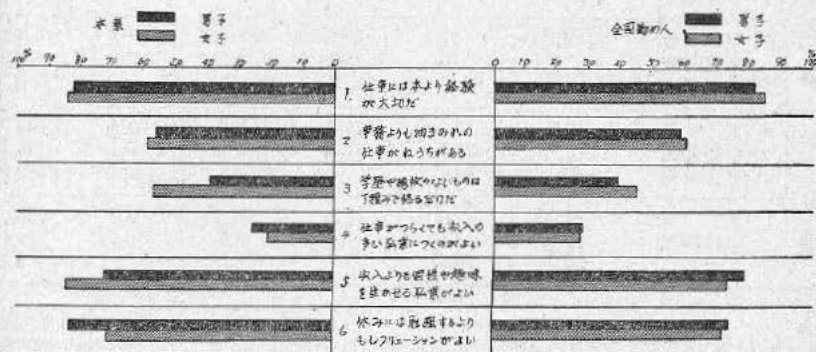 本県 男子
女子
全国勤め人 男子
女子
100% 90 80 70 60 50 40 30 20 10 0
0 10 20 30 40 50 60 70 80 90 100%
1. 仕事には本より経験
が大切だ
2 事務よりも油まみれの
仕事がねうちがある
3 学歴や縁故のないものは
下積みで終るだけだ
4 仕事がつらくても収入の
多い職業につくのがよい
5 収入よりも個性や趣味
を生かせる職業がよい
6 休みには勉強するより
もレクリェーションがよい